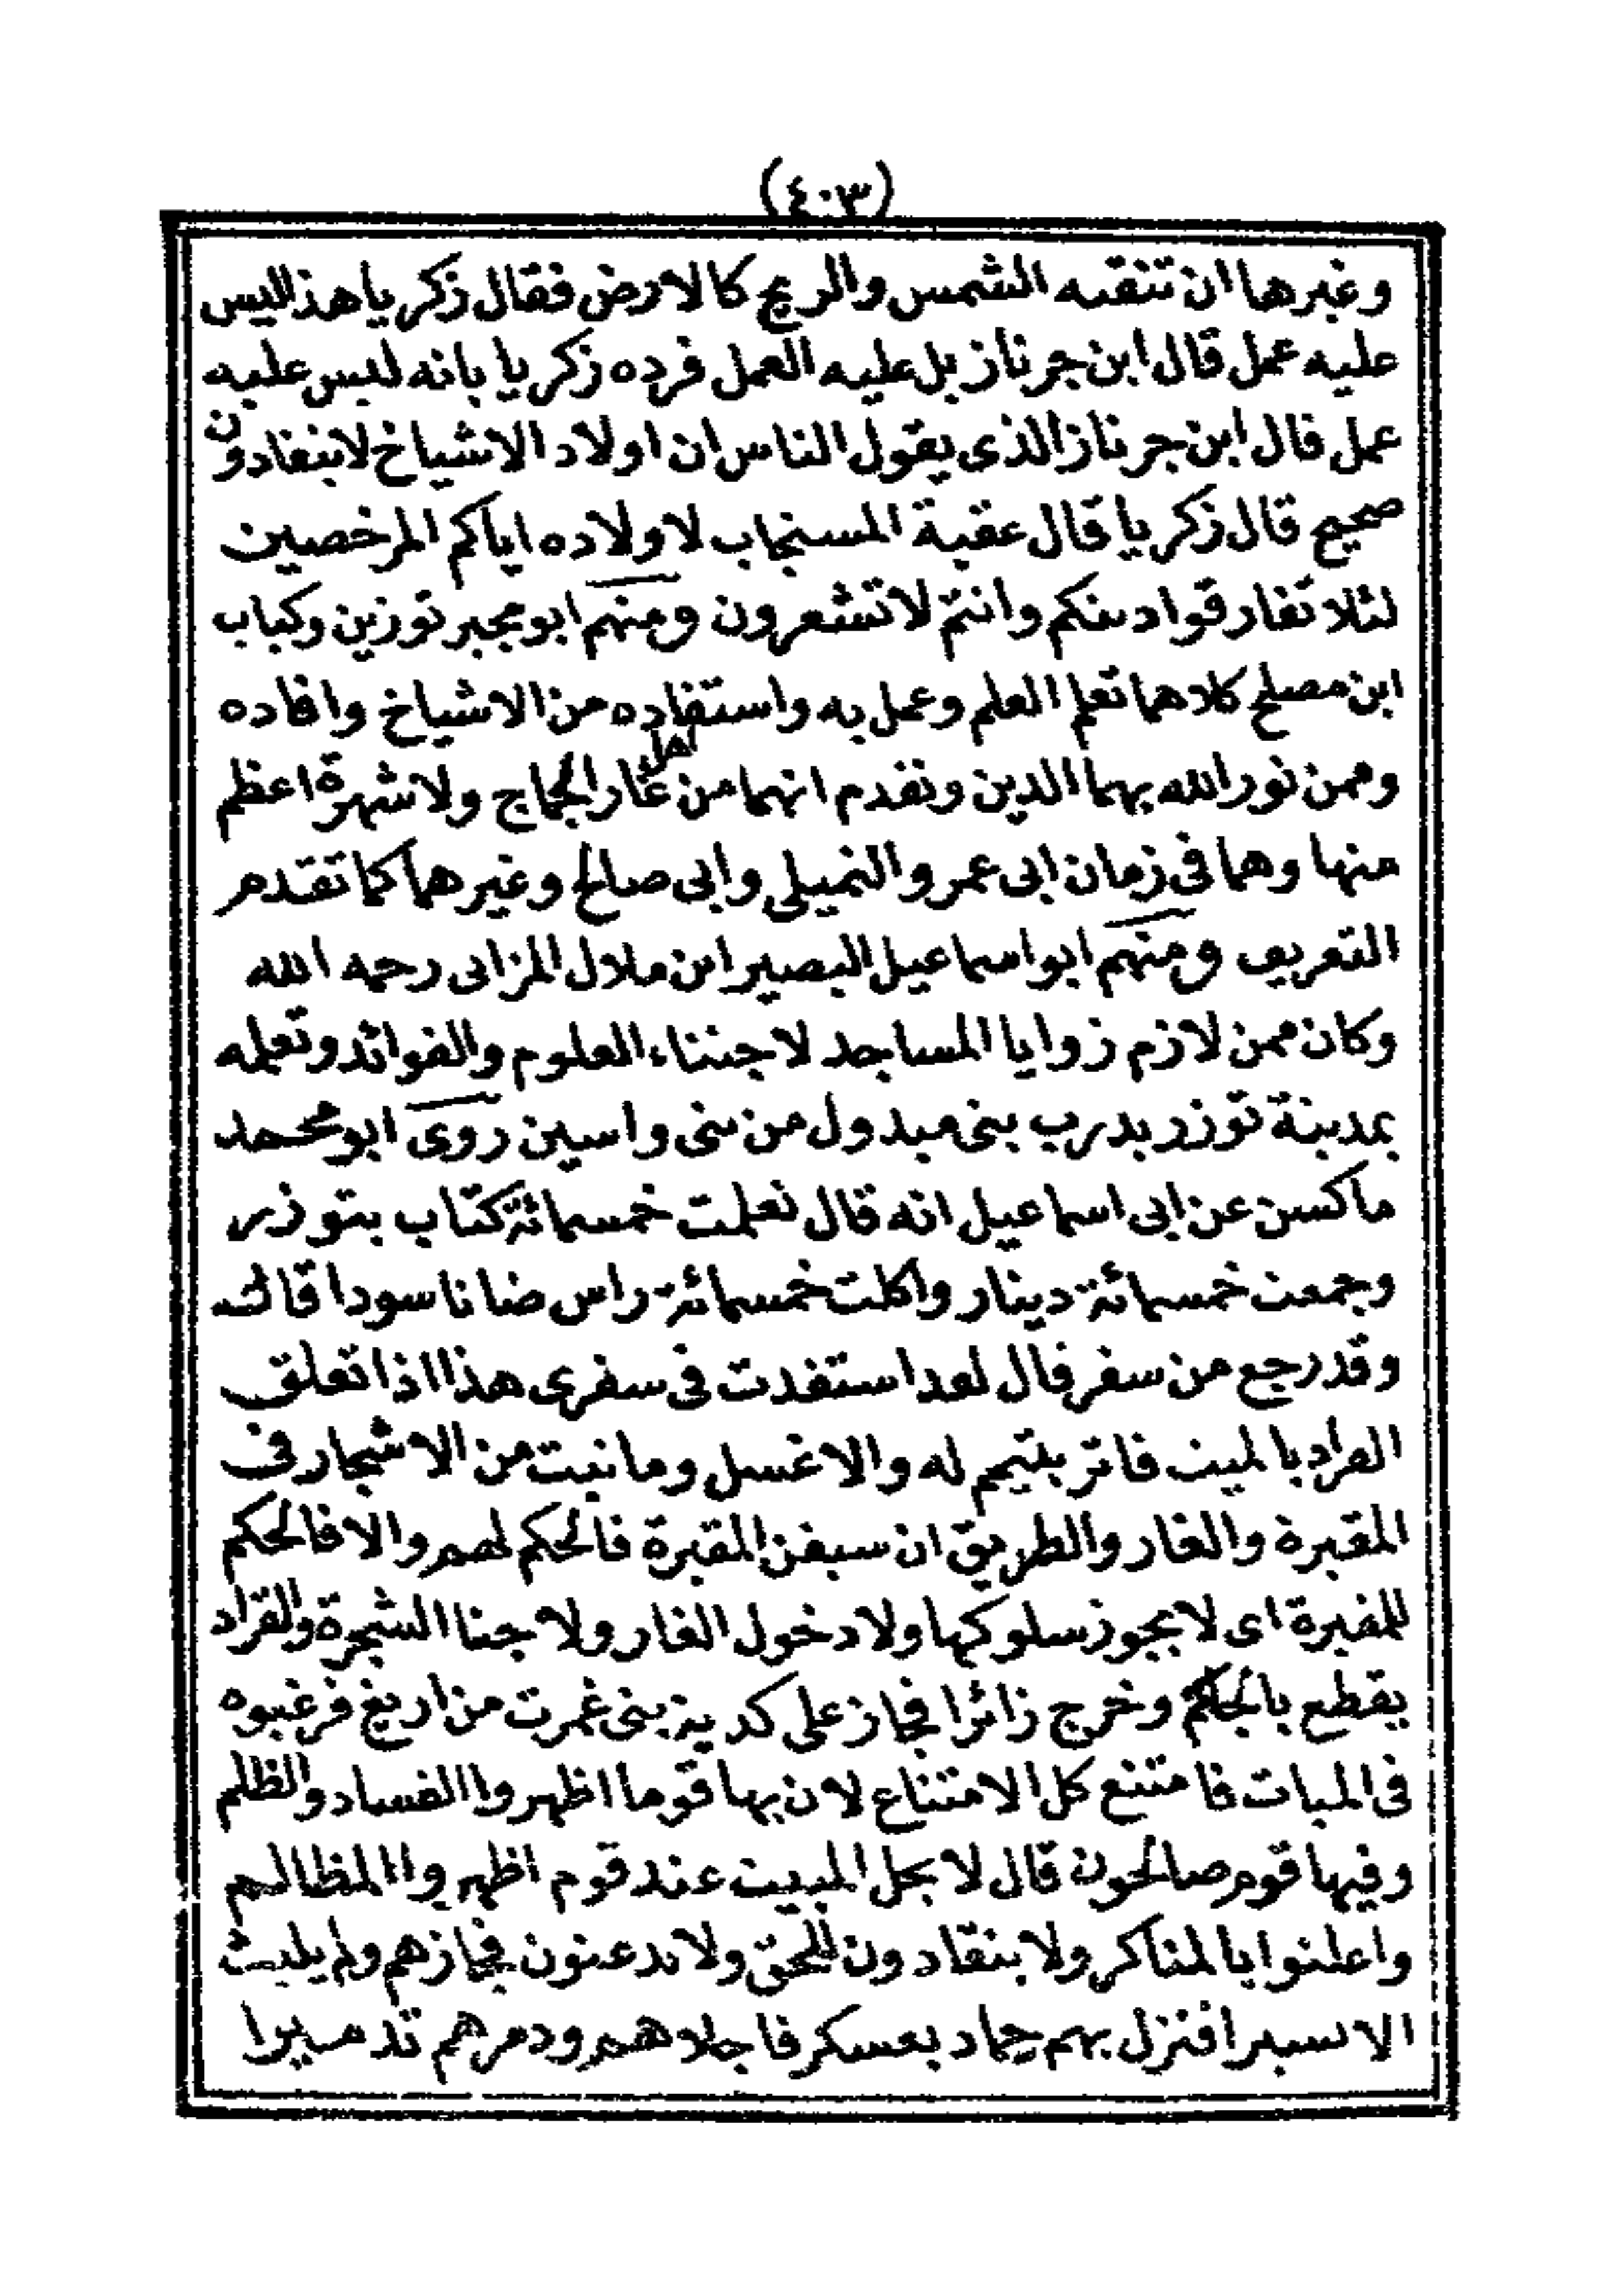 (٤٠٣)
وغيرها ان تنقيه الشمس والريح كالارض فقال زكريا هذا ليس
عليه عمل قال ابن جرناز بل عليه العمل فرده زكريا بانه ليس عليه
عمل قال ابن جرناز الذى يقول الناس ان اولاد الاشياخ لا ينقادون
صحيح قال زكريا قال عقبة المستجاب لاولاده اياكم المرخصين
لئلا تفارقوا دينكم وانتم لا تشعرون ومنهم ابو مجبر توزين وكباب
ابن مصلح كلاهما تعلم العلم وعمل به واستفاده من الاشياخ وافاده
وممن نور الله بهما الدين وتقدم انهما من اهل غار الجماج ولا شهرة اعظم
منها وهما فى زمان ابى عمرو النميلى وابى صالح وغيرهما كما تقدم
التعريف ومنهم ابو اسماعيل البصير ابن ملال المزاتى رحمه الله
وكان ممن لازم زوايا المساجد لاجتناء العلوم والفوائد وتعلمه
بمدينة توزر بدرب بنى ميدول من بنى واسين روى ابو محمد
ماكسن عن ابى اسماعيل انه قال تعلمت خمسمائة كتاب بتوزر
وجمعت خمسمائة دينار واكلت خمسمائة راس ضانا سودا قال
وقد رجع من سفر قال لقد استفدت فى سفرى هذا اذا تعلق
القراد بالميت فاتر بتيمم له والا غسل وما نبت من الاشجار فى
المقبرة والغار والطريق ان سبقن المقبرة فالحكم لهم والا فالحكم
للمقبرة اى لا يجوز سلوكها ولا دخول الغار ولا جنا الشجرة والقراد
يقطع بالجلم وخرج زائرا فجاز على كدية بنى غمرت من اريغ فرغبوه
فى المبات فامتنع كل الامتناع لان بها قوما اظهروا الفساد والظلم
وفيها قوم صالحون قال لا يحل المبيت عند قوم اظهروا المظالم
واعلنوا بالمناكر ولا ينقادون للحق ولا يدعنون فجازهم ولم يلبث
الا سيرا فنزل بهم حماد بعسكر فاجلاهم ودمرهم تدميرا